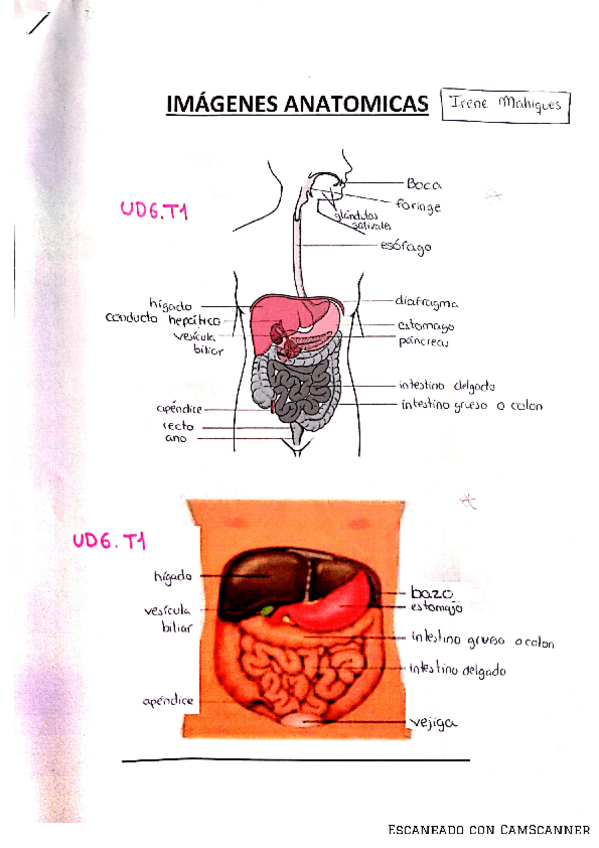 IMÁGENES ANATOMICAS
Irene Mahiques
UD6.T1
Boca
faringe
glándulas
salivales
esófago
hígado
conducto hepático
vesícula
biliar
diafragma
estomago
páncreas
intestino delgado
intestino grueso o colon
apéndice
recto
ano
UD6.T1
hígado
vesícula
biliar
bazo
estomago
intestino grueso o colon
intestino delgado
apéndice
vejiga
ESCANEADO CON CAMSCANNER